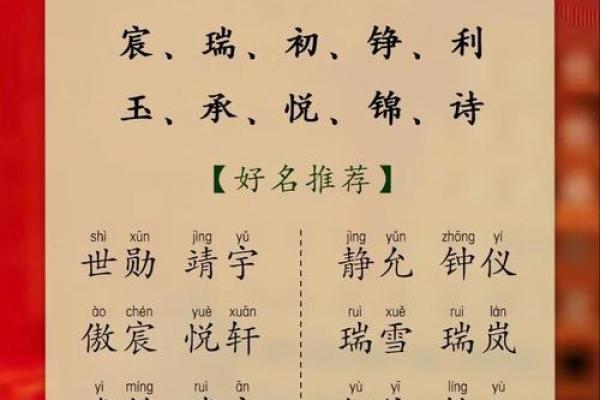 宸、瑞、初、铮、利
玉、承、悦、锦、诗
【好名推荐】
shì xūn jìng yǔ jìng yǔn zhōng yí
世勋 靖宇 静允 钟仪
ào chén yuè xuān ruì xuě ruì lán
傲宸 悦轩 瑞雪 瑞岚
yì míng ruì ān yù yī líng yù